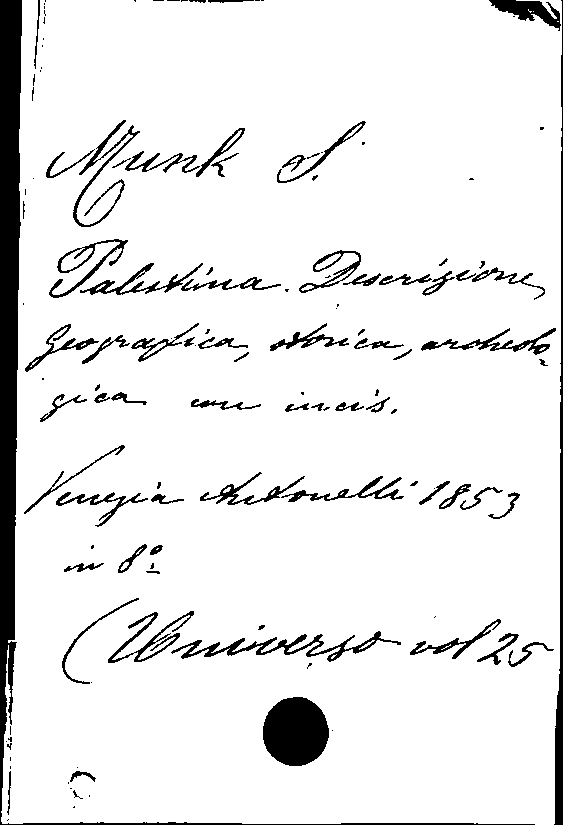 Munk S.
Palestina. Descrizione
geografica, storica, archeolo-
gica con incis.
Venezia Antonelli 1853
in 8º
(Universo vol 25